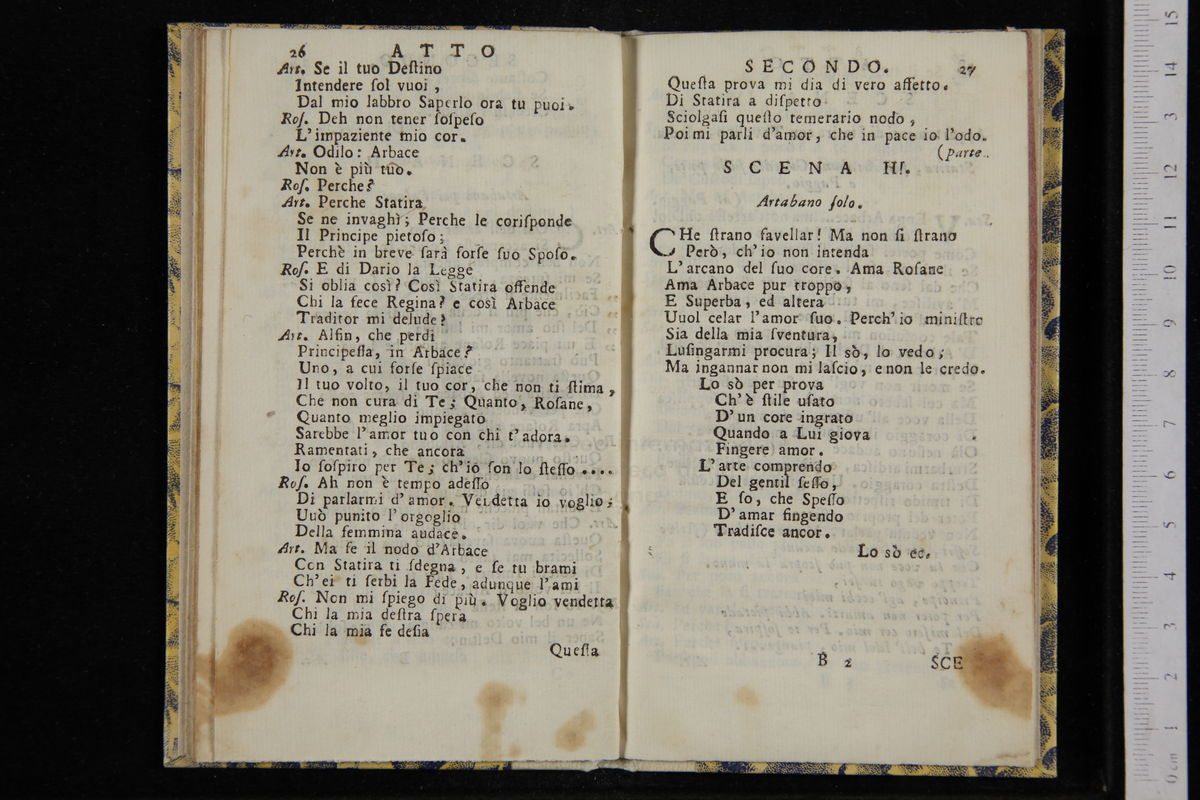 26 ATTO
Art. Se il tuo Deſtino
Intendere ſol vuoi ,
Dal mio labbro Saperlo ora tu puoi.
Roſ. Deh non tener ſoſpeſo
L'impaziente mio cor.
Art. Odilo: Arbace
Non è più tuo.
Roſ. Perche?
Art. Perche Statira
Se ne invaghì; Perche le coriſponde
Il Principe pietoſo;
Perchè in breve ſarà forſe ſuo Spoſo.
Roſ. E di Dario la Legge
Si oblia così? Così Statira offende
Chi la fece Regina? e così Arbace
Traditor mi delude?
Art. Alfin, che perdi
Principeſſa, in Arbace?
Uno, a cui forſe ſpiace
Il tuo volto, il tuo cor, che non ti ſtima,
Che non cura di Te; Quanto, Roſane,
Quanto meglio impiegato
Sarebbe l'amor tuo con chi t'adora.
Ramentati, che ancora
Io ſoſpiro per Te; ch'io ſon lo ſteſſo ....
Roſ. Ah non è tempo adeſſo
Di parlarmi d'amor. Vendetta io voglio;
Uuò punito l'orgoglio
Della femmina audace.
Art. Ma ſe il nodo d'Arbace
Con Statira ti ſdegna, e ſe tu brami
Ch'ei ti ſerbi la Fede, adunque l'ami
Roſ. Non mi ſpiego di più. Voglio vendetta
Chi la mia deſtra ſpera
Chi la mia fe deſia
Queſta
SECONDO. 27
Queſta prova mi dia di vero affetto.
Di Statira a diſpetto
Sciolgaſi queſto temerario nodo,
Poi mi parli d'amor, che in pace io l'odo.
(parte.
SCENA III.
Artabano ſolo.
CHe ſtrano favellar! Ma non ſi ſtrano
Però, ch'io non intenda
L'arcano del ſuo core. Ama Roſane
Ama Arbace pur troppo,
E Superba, ed altera
Uuol celar l'amor ſuo. Perch'io miniſtro
Sia della mia ſventura,
Luſingarmi procura; Il sò, lo vedo;
Ma ingannar non mi laſcio, e non le credo.
Lo sò per prova
Ch'è ſtile uſato
D'un core ingrato
Quando a Lui giova
Fingere amor.
L'arte comprendo
Del gentil ſeſſo,
E ſo, che Speſſo
D'amar fingendo
Tradiſce ancor.
Lo sò ec.
B 2 SCE